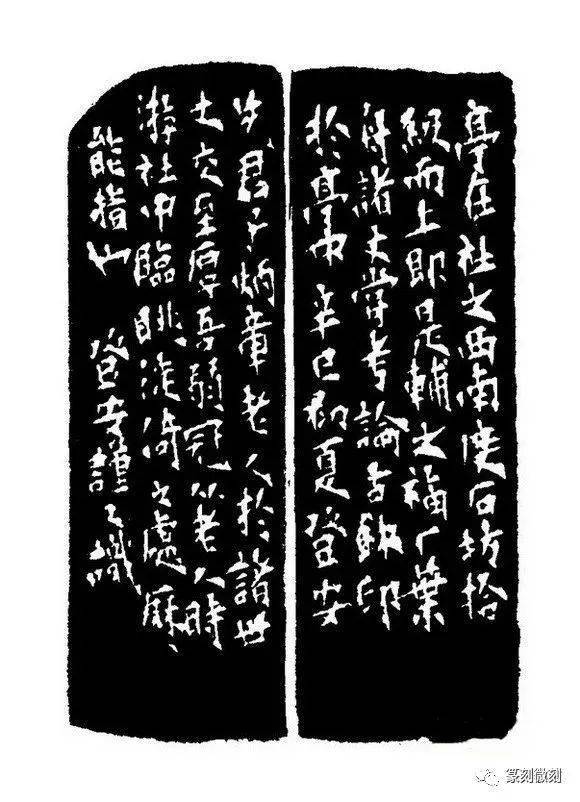 亭在社之西南陝石坊拾
級而上即是輔之福厂葉
舟諸丈嘗考論古鉨印
於亭中辛巳初夏登安
君子炳章老人於諧世
士交至厚吾弱冠從老人時
游社中臨眺淀倚之處歷〻
能指也 登安謹之識
篆刻微刻